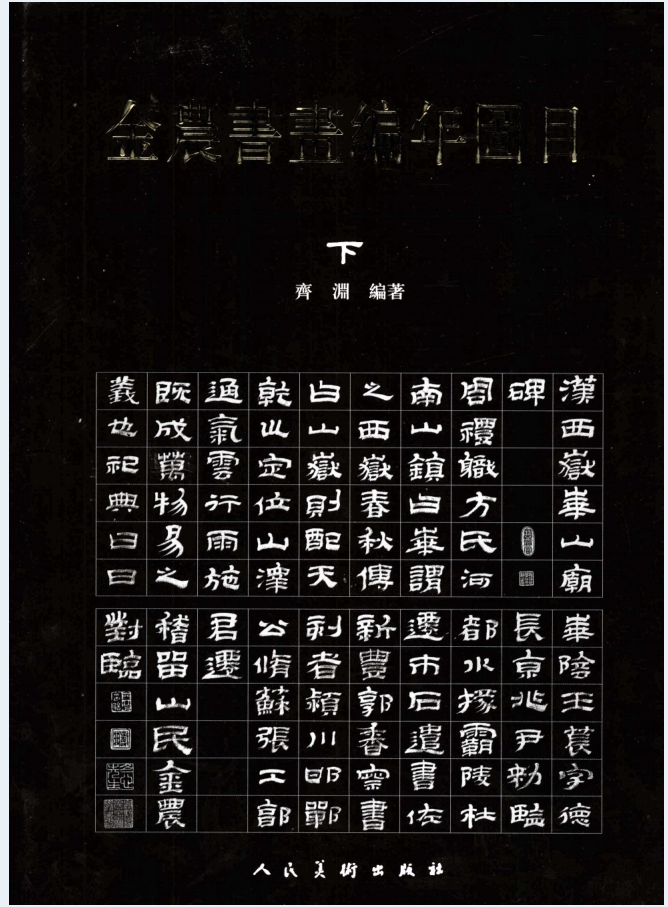 金農書畫編年圖目
下
齊 淵 編著
漢西嶽華山廟
碑
周禮職方氏河
南山鎮曰華謂
之西嶽春秋傳
曰山嶽則配天
乾巛定位山澤
通氣雲行雨施
既成萬物易之
義也祀典曰日
華陰王萇字德
長京兆尹勑監
都水掾霸陵杜
遷市石遣書佐
新豐郭香察書
刻者潁川邯鄲
公脩蘇張工郭
君遷
稽留山民金農
對臨
人民美術出版社